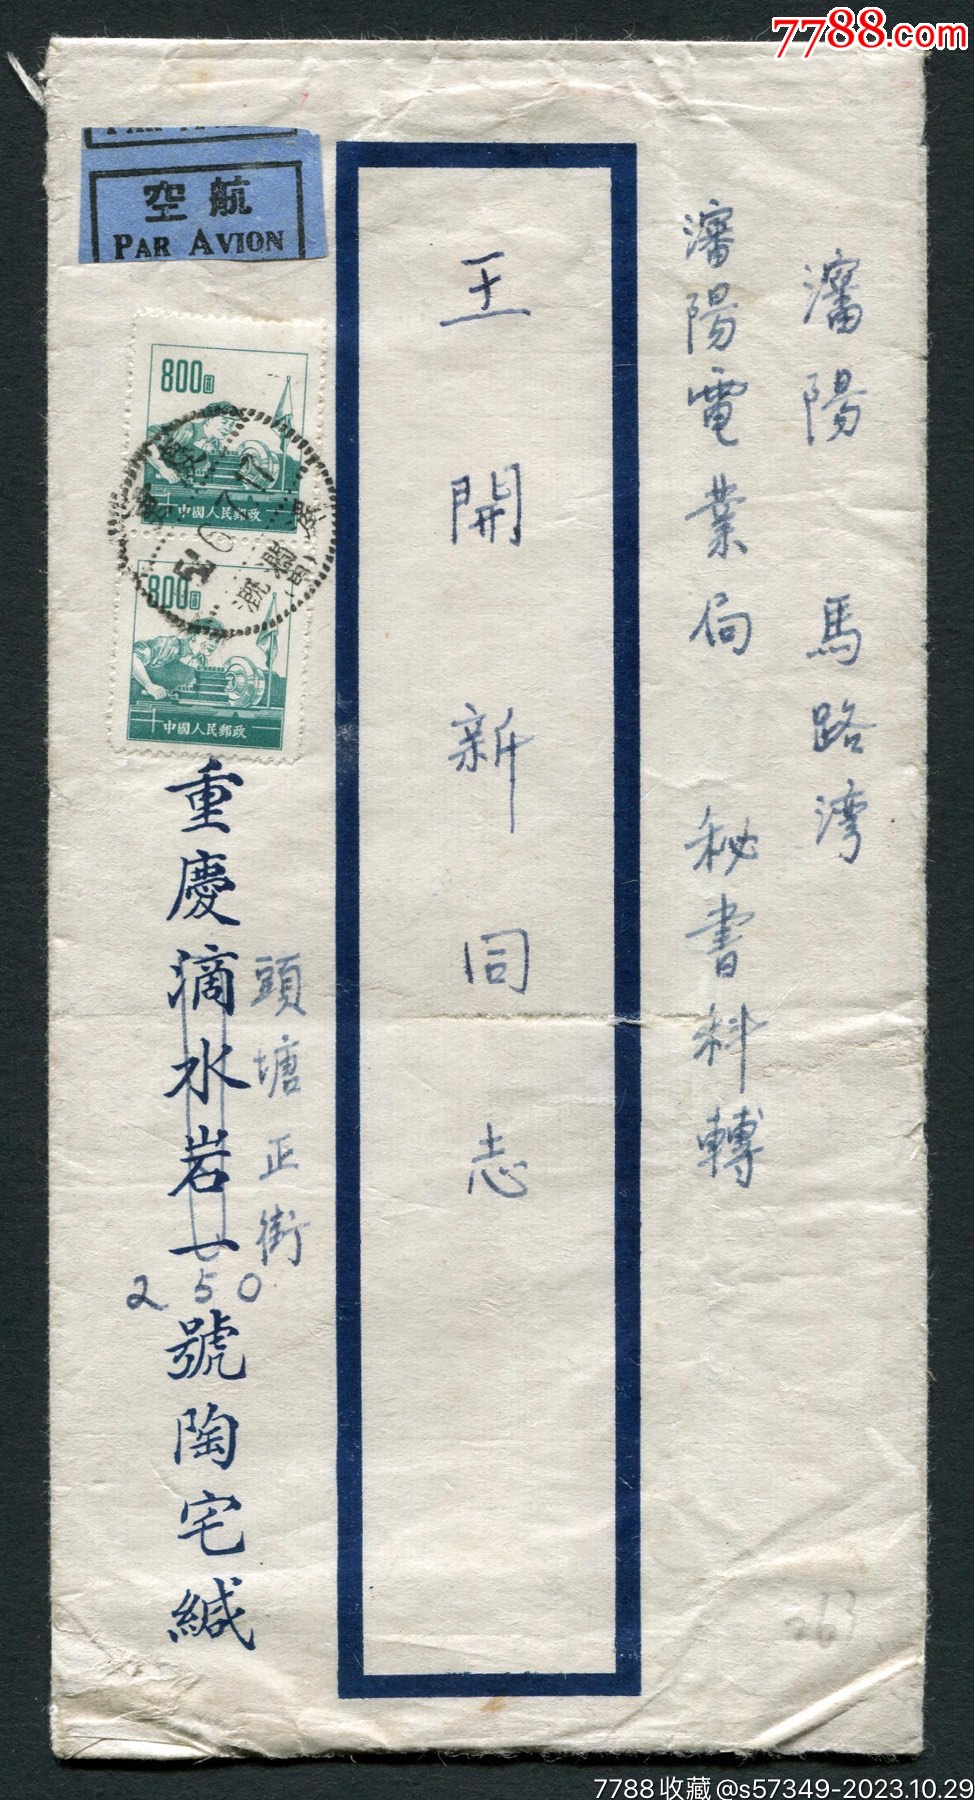 7788.com
瀋陽 馬路湾
瀋陽電業局 秘書科轉
王開新同志
空航
PAR AVION
800圓
中國人民郵政
800圓
中國人民郵政
重慶滴水岩一號陶宅緘
頭塘正街
250
263
7788收藏@s57349-2023.10.29